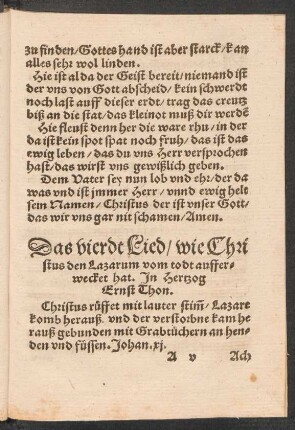 zu finden/ Gottes hand ist aber starck/ kan
alles sehr wol linden.
Hie ist alda der Geist bereit/ niemand ist
der vns von Gott abscheid/ kein schwerdt
noch last auff dieser erdt/ trag das creutz
biß an die stat/ das kleinot muß dir werdē
Hie fleust denn her die ware rhu/ in der
da ist kein spot spat noch fruh/ das ist das
ewig leben/ das du vns Herr versprochen
hast/ das wirst vns gewißlich geben.
Dem Vater sey nun lob vnd ehr/ der da
was vnd ist jmmer Herr/ vnnd ewig helt
sein Namen/ Christus der ist vnser Gott/
das wir vns gar nit schamen/ Amen.
Das vierdt Lied/ wie Chri
stus den Lazarum vom todt auffer-
wecket hat. In Hertzog
Ernst Thon.
Christus rüffet mit lauter stim̄/ Lazare
komb herauß. vnd der verstorbne kam he
rauß gebunden mit Grabtüchern an hen-
den vnd füssen. Johan. xj.
A v Ach